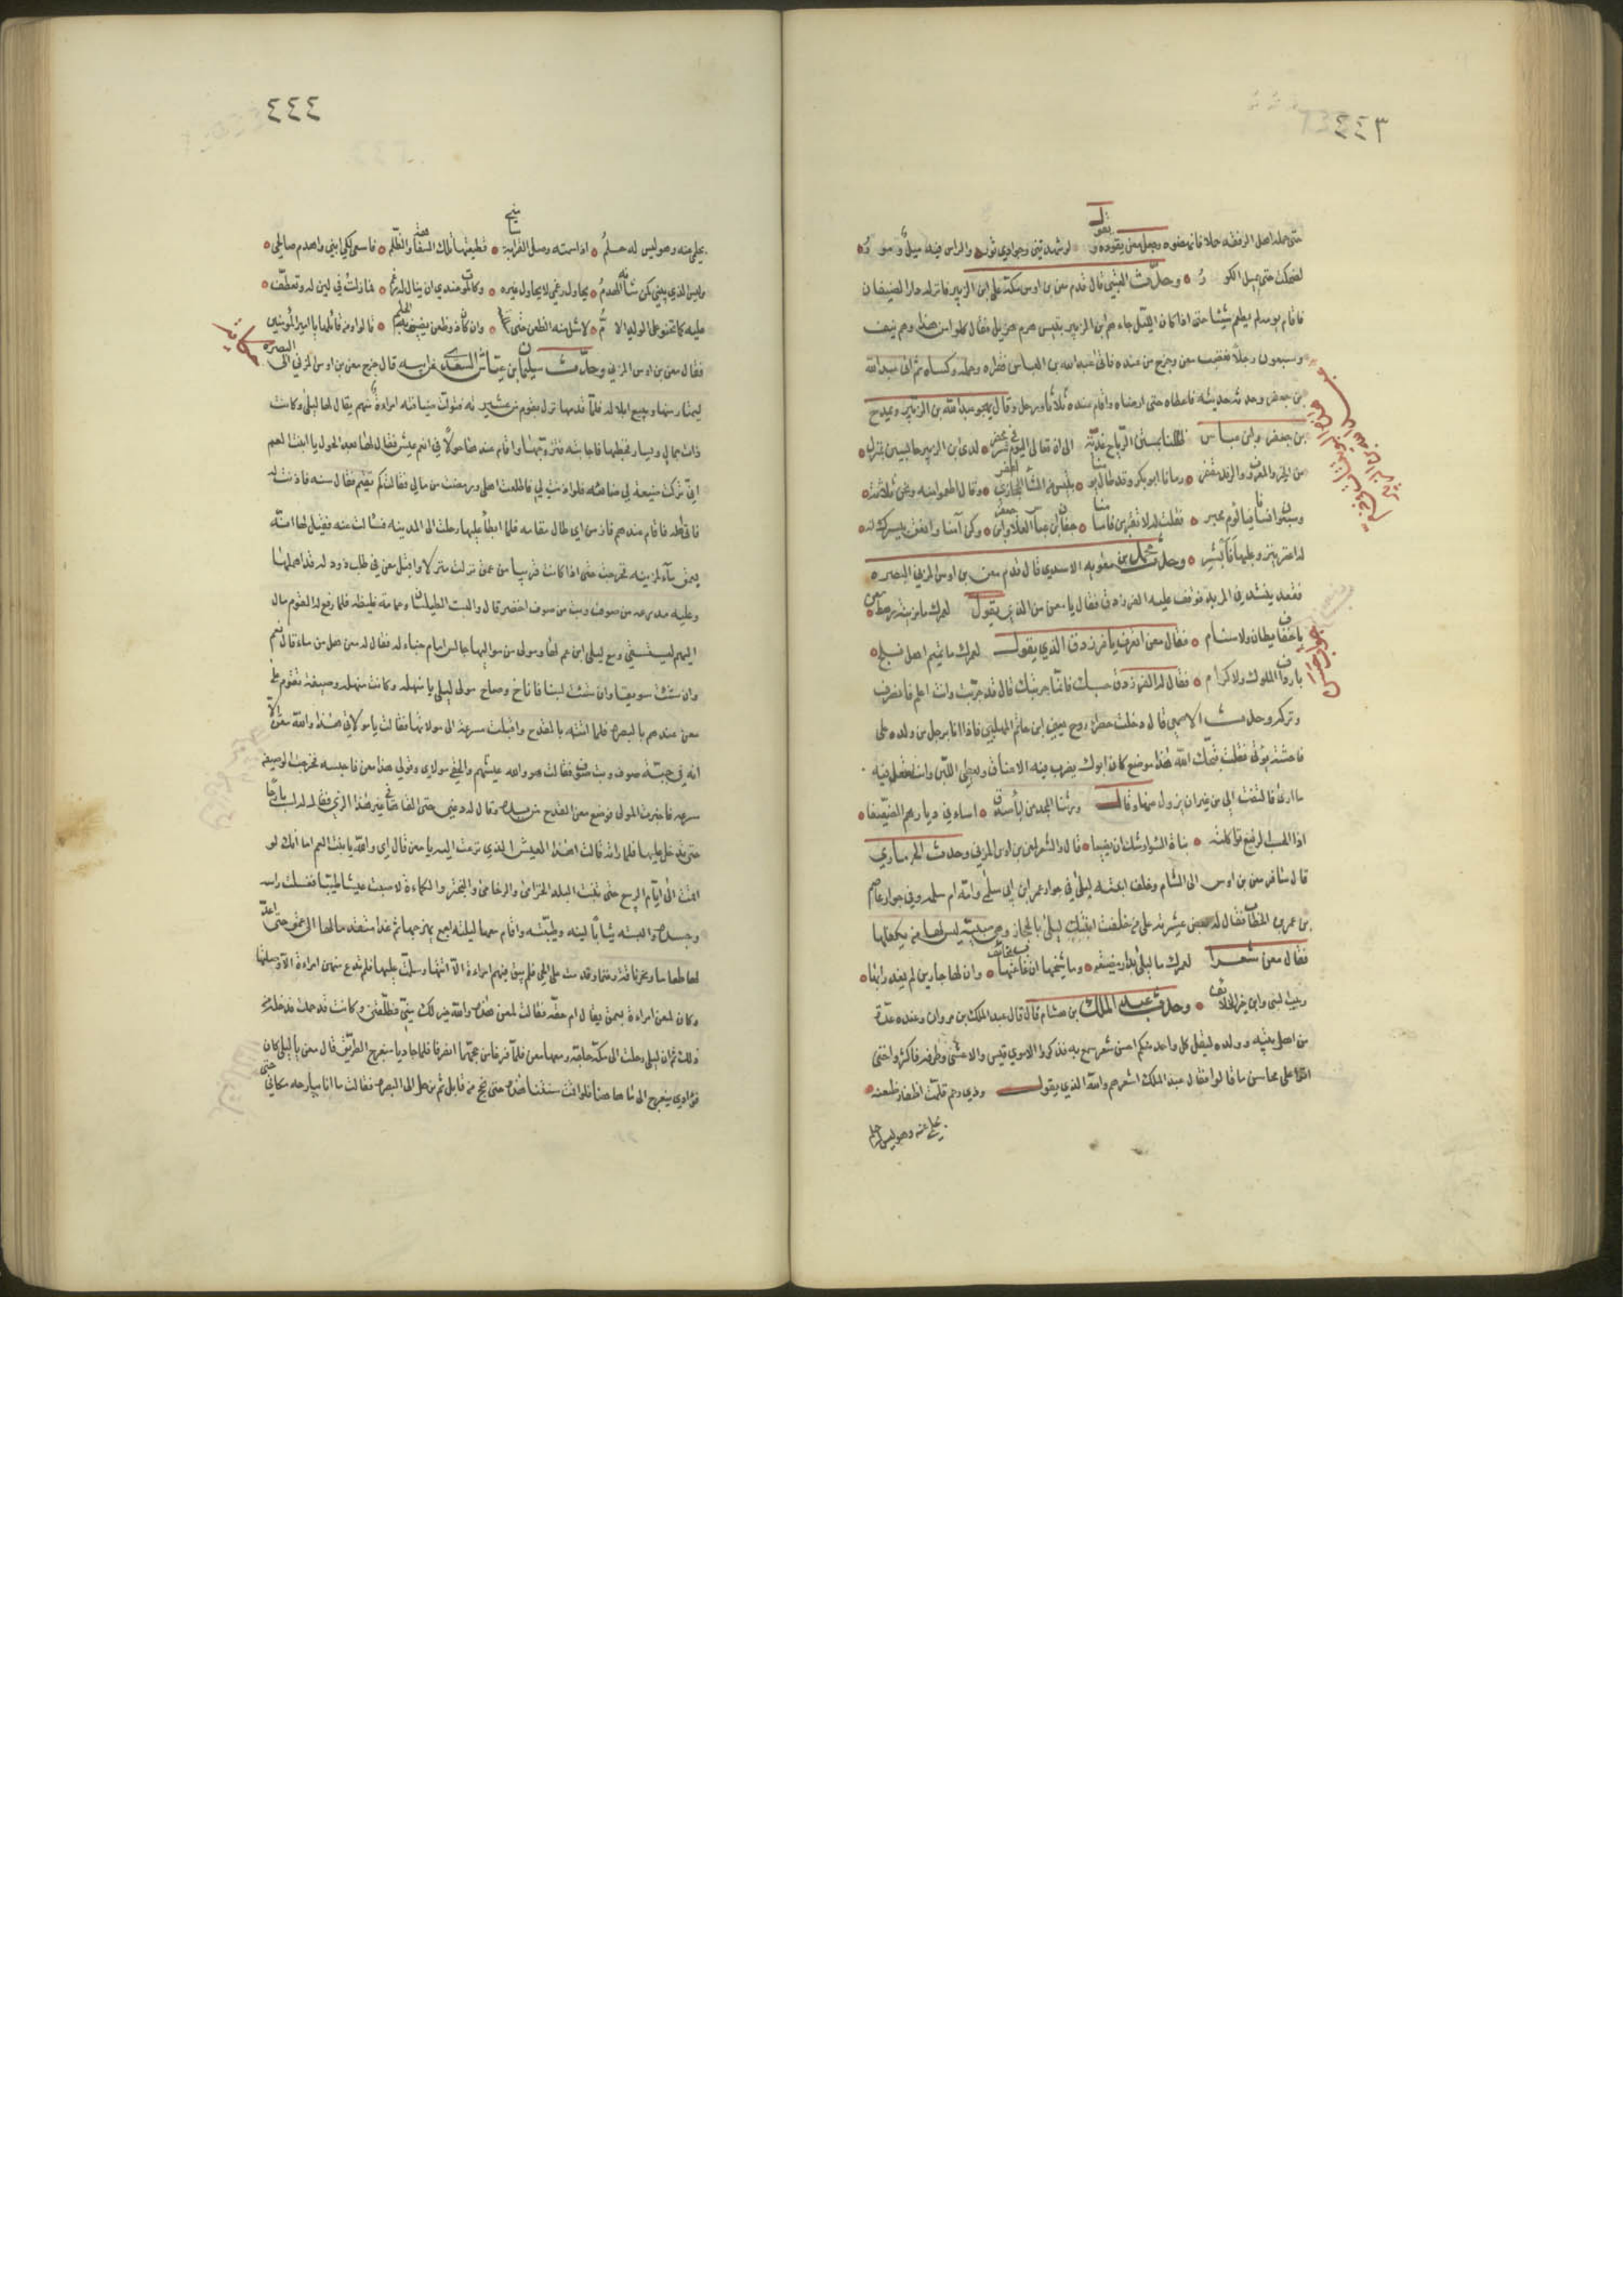 ٤٤٣
حتى حمله اهل الرفقه حملا فانهضوه وجعل معن يقوده و يقول لو شهدتني وجوادي ثور والراس فيه ميل و مور
لضحكت حتى يميل الكور وحدث العتبي قال قدم معن بن اوس مكة على ابن الزبير فانزله دار الضيفان
فاقام يومه لم يطعم شيئا حتى اذا كان الليل جاءهم ابن الزبير بتيس هرم هزيل فقال كلوا من هذا وهم نيف
وسبعون رجلا فغضب معن وخرج من عنده فاتى عبدالله بن العباس فقراه وحمله وكساه ثم اتى عبدالله
بن جعفر وحدثه حديثه فاعطاه حتى ارضاه واقام عنده ثلاثا ورحل وقال يهجو عبدالله بن الزبير ويمدح
بن جعفر وابن عباس ظللنا بمستن الرياح غدية الى ان تعالى اليوم في شر محضر لدى ابن الزبير حابسين بمنزل
من الخير والمعروف والرفد مقفر رمانا ابو بكر وقد طال يومنا بتيس من الشاء الحجازي اعفر وقال اطعموا منه ونحن ثلاثة
وسبعون انسانا فيا لوم مخبر فقلت له لا تقرين فامامنا جفان ابن عباس العلا وابن جعفر وكن آمنا وارفق بتيسك انه
له اعنز ينزو عليها وابشر وحدث محمد بن معويه الاسدي قال قدم معن بن اوس المزني البصره
فقعد ينشد في المربد فوقف عليه الفرزدق فقال يا معن من الذي يقول لعمرك ما مزينة رهط معن
باخفاف يطان ولا سنام فقال معن اتعرف يا فرزدق الذي يقول لعمرك ما تميم اهل فلج
بارداف الملوك ولا كرام فقال له الفرزدق حسبك فانما جربتك قال قد جربت وانت اعلم فانصرف
وتركه وحدث الاصمعي قال دخلت خضراء روح بن حاتم المهلبي فاذا انا برجل من ولده على
فاحشة يؤتى فقلت قبحك الله هذا موضع كان ابوك يضرب فيه الاعناق ويعطي اللهى وانت تفعل فيه
ما ارى فالتفت الي من غير ان يزول عنها وقال ورثنا المجد من آباء صدق اسانا في ديارهم الصنيعا
اذا الحسب الرفيع تواكلته بناة السوء اوشك ان يضيعا قال والشعر لمعن بن اوس المزني وحدث الحرمازي
قال سافر معن بن اوس الى الشام وخلف ابنته ليلى في جوار عمر ابن ابي سلمة وامه ام سلمه وفي جوار عاصم
بن عمر بن الخطاب فقال له بعض عشيرته على من خلفت ابنتك ليلى بالحجاز وهي صبية ليس لها من يكفلها
فقال معن شعرا لعمرك ما ليلى بدار مضيعة وما شيخها ان غاب عنها بخائف وان لها جارين لم يغدرا بها
ربيب النبي وابن خير الخلائف وحدث عبد الملك بن هشام قال قال عبد الملك بن مروان وعنده عدة
من اهل بيته وولده ليقل كل واحد منكم احسن شعر سمع به فذكروا لامرئ قيس والاعشى وطرفه فاكثروا حتى
اتوا على محاسن ما قالوا فقال عبد الملك اشعرهم والله الذي يقول وذي رحم قلمت اظفار ضغنه
بحلمي عنه وهو ليس له حلم
٤٤٤
بحلمي عنه وهو ليس له حلم اذا سمته وصل القرابة سامني قطيعتها تلك السفاهة والظلم فاسعى لكي ابني ويهدم صالحي
وليس الذي يبني كمن شأنه الهدم يحاول رغمي لا يحاول غيره وكالموت عندي ان ينال له رغم فما زلت في لين له وتعطف
عليه كما تحنو على الولد الام لاستل منه الضغن حتى سللته وان كان ذا ضغن يضيق به الحلم قالوا ومن قائلها يا امير المؤمنين
فقال معن بن اوس المزني وحدث سليمان بن عياش السعدي عن ابيه قال خرج معن بن اوس المزني الى البصره
ليمتار منها ويبيع ابلا له فلما قدمها نزل بقوم من عشيرته فتولت ضيافته امراة منهم يقال لها ليلى وكانت
ذات جمال ويسار فخطبها فاجابته فتزوجها واقام عندها حولا في انعم عيش فقال لها بعد الحول يا ابنت العم
اني تركت ضيعة لي ضائعه فلو اذنت لي فاطلعت اهلي ورممت من مالي فقالت كم تقيم فقال سنه فاذنت له
فاتى اهله فاقام عندهم فازمن اي طال مقامه فلما ابطأ عليها رحلت الى المدينه فسالت عنه فقيل لها انه
بعمق ماء لمزينه فخرجت حتى اذا كانت قريبا من عمق نزلت منزلا واقبل معن في طلب ذود له قد اضلها
وعليه مدرعه من صوف وبت من صوف اخضر قال والبت الطيلسان وعمامة غليظه فلما رفع له القوم مال
اليهم ليستسقي ومع ليلى ابن عم لها ومولى من مواليها جالس امام خباء له فقال له معن هل من ماء قال نعم
وان شئت سويقا وان شئت لبنا فاناخ وصاح مولى ليلى يا منهله وكانت منهله وصيفة تقوم على
معن عندهم بالبصره فلما اتته بالقدح واقبلت مسرعة الى مولاتها فقالت يا مولاتي هذا والله معن الا
انه في جبة صوف وبت صوف فقالت هو والله عيشهم والحقي مولاي وقولي هذا معن فاحبسه فخرجت الوصيفة
مسرعه فاخبرت المولى فوضع معن القدح من يده وقال له دعني حتى القاها في غير هذا الزي فقال له لست بارحا
حتى تدخل عليها فلما راته قالت اهذا العيش الذي نزعت اليه يا معن قال اي والله يا بنت العم اما انك لو
اقمت الى ايام الربيع حتى ينبت البلد الخزامى والرخامى والسخبر والكماءة لاصبت عيشا طيبا فغسلت راسه
وجسده والبسته ثيابا لينه وطيبته واقام معها ليلته اجمع يمزحها ثم غدا متقدما لها الى عمق حتى اعد
لها طعاما ونحر ناقة وغنما وقدمت على الحي فلم يبق منهم امراة الا اتتها وسلمت عليها فلم تدع منهن امراة الا وصلتها
وكان لمعن امراة بعمق يقال ام حقه فقالت لمعن هذه والله خير لك مني فطلقني وكانت قد حملت فدخله من
ذلك ثم ان ليلى رحلت الى مكة حاجة ومعها معن فلما فرغا من حجهما انصرفا فلما جاوزا منعرج الطريق قال معن يا ليلى كان
فؤادي ينعرج الى ما هاهنا فلو اقمت سنتنا هذه حتى نحج من قابل ثم نرحل الى البصره فقالت ما انا ببارحه مكاني حتى